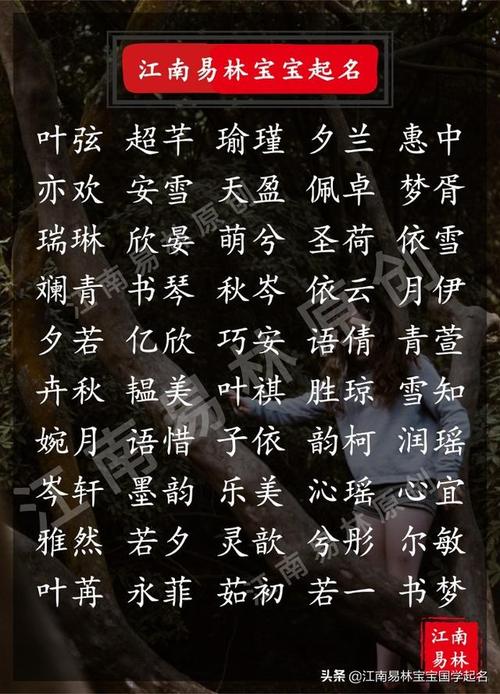 江南易林宝宝起名
叶弦 超芊 瑜瑾 夕兰 惠中
亦欢 安雪 天盈 佩卓 梦胥
瑞琳 欣晏 萌兮 圣荷 依雪
斓青 书琴 秋岑 依云 月伊
夕若 亿欣 巧安 语倩 青萱
卉秋 韫美 叶祺 胜琼 雪知
婉月 语惜 子依 韵柯 润瑶
岑轩 墨韵 乐美 沁瑶 心宜
雅然 若夕 灵歆 兮彤 尔敏
叶苒 永菲 茹初 若一 书梦
江南易林原创
江南易林原创
江南易林原创
江南
易林
头条 @江南易林宝宝国学起名